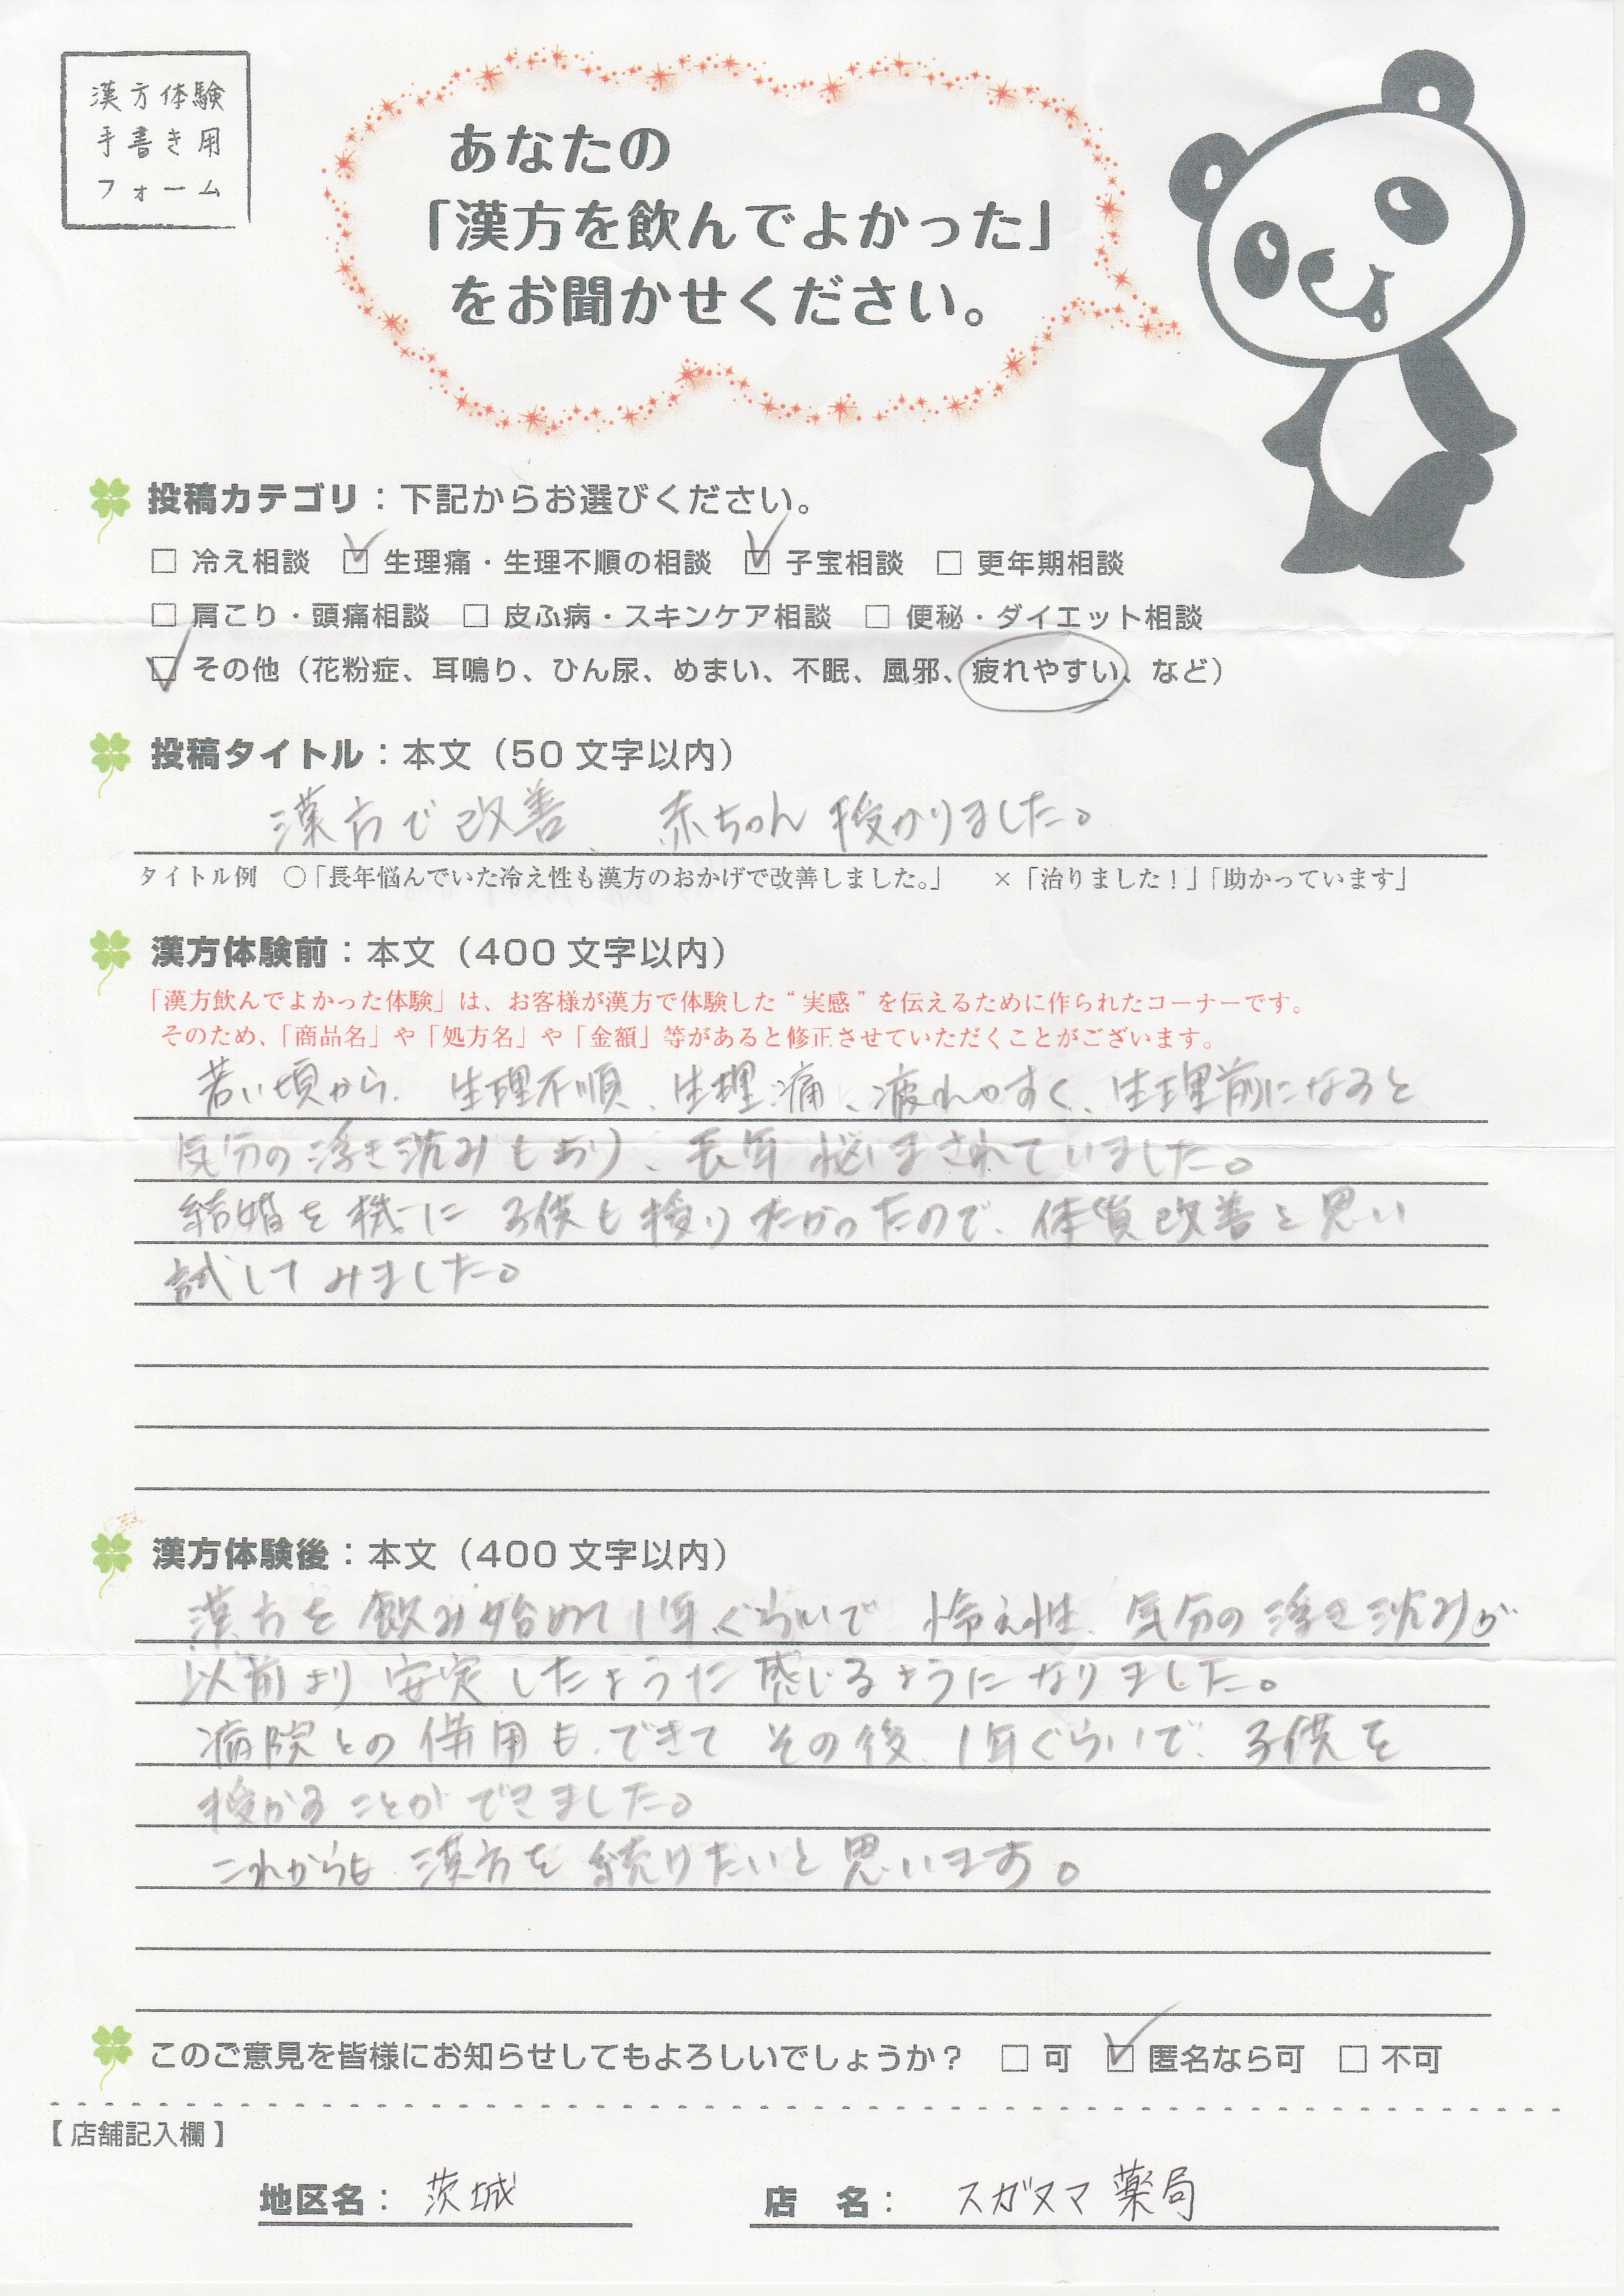 漢方体験
手書き用
フォーム
あなたの
「漢方を飲んでよかった」
をお聞かせください。
投稿カテゴリ：下記からお選びください。
□ 冷え相談 ☑ 生理痛・生理不順の相談 ☑ 子宝相談 □ 更年期相談
□ 肩こり・頭痛相談 □ 皮ふ病・スキンケア相談 □ 便秘・ダイエット相談
☑ その他（花粉症、耳鳴り、ひん尿、めまい、不眠、風邪、疲れやすい、など）
投稿タイトル：本文（50 文字以内）
漢方で改善、赤ちゃん授かりました。
タイトル例 ○「長年悩んでいた冷え性も漢方のおかげで改善しました。」 ×「治りました！」「助かっています」
漢方体験前：本文（400 文字以内）
「漢方飲んでよかった体験」は、お客様が漢方で体験した“実感”を伝えるために作られたコーナーです。
そのため、「商品名」や「処方名」や「金額」等があると修正させていただくことがございます。
若い頃から、生理不順、生理痛、疲れやすく、生理前になると
気分の浮き沈みもあり、長年悩まされていました。
結婚を機に子供も授りたかったので、体質改善と思い
試してみました。
漢方体験後：本文（400 文字以内）
漢方を飲み始めて1年ぐらいで冷え性、気分の浮き沈みが
以前より安定したように感じるようになりました。
病院との併用もできてその後、1年ぐらいで、子供を
授かることができました。
これからも漢方を続けたいと思います。
このご意見を皆様にお知らせしてもよろしいでしょうか？ □ 可 ☑ 匿名なら可 □ 不可
【店舗記入欄】
地区名： 茨城 店 名： スガヌマ薬局